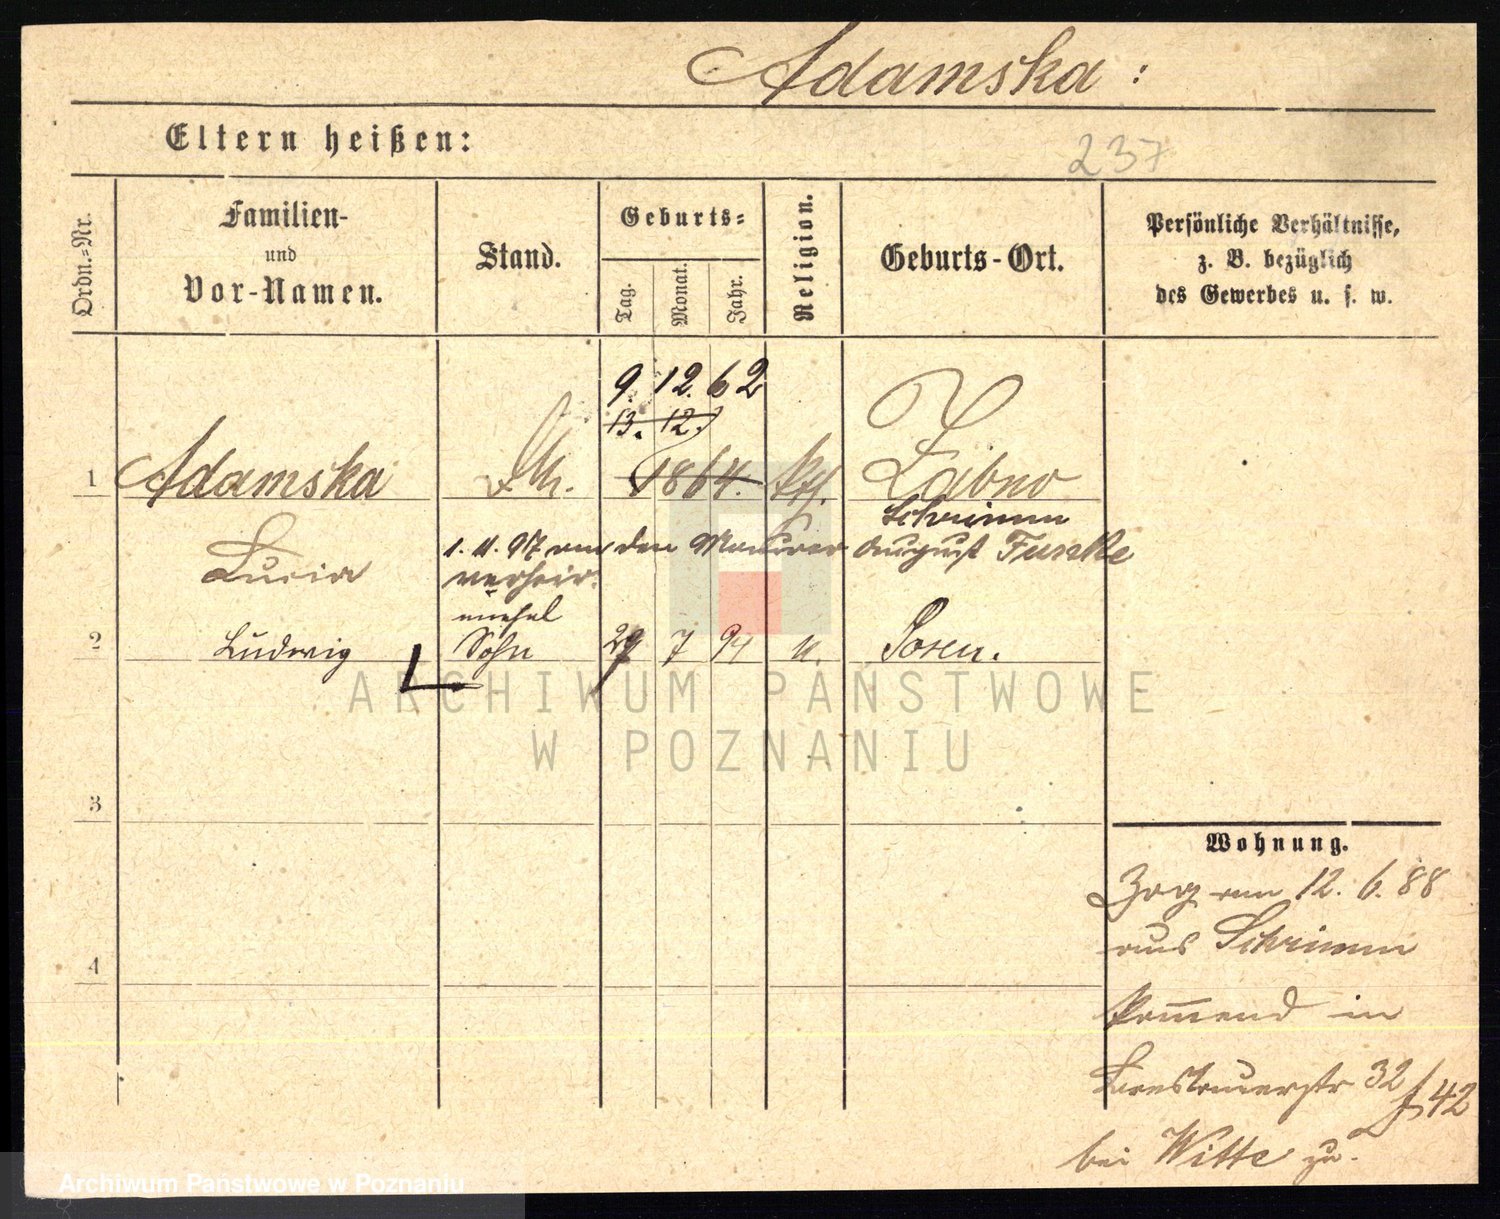 Adamska :
Eltern heißen:
237
Ordn.-Nr.
Familien-
und
Vor-Namen.
Stand.
Geburts-
Tag.
Monat.
Jahr.
Religion.
Geburts-Ort.
Persönliche Verhältnisse,
z. B. bezüglich
des Gewerbes u. s. w.
9. 12. 62
13. 12.
1 Adamska 1864. kth. Żabno
Schrimm
Lucia
1. 11. 97 an den Maurer August Funke
verheir.
unehel
2 Ludwig Sohn 29 7 94 u. Posen.
ARCHIWUM PAŃSTWOWE
W POZNANIU
3
4
Wohnung.
Zog am 12. 6. 88
aus Schrimm
kommend in
Breslauerstr 32
f 42
bei Witte zu.
Archiwum Państwowe w Poznaniu